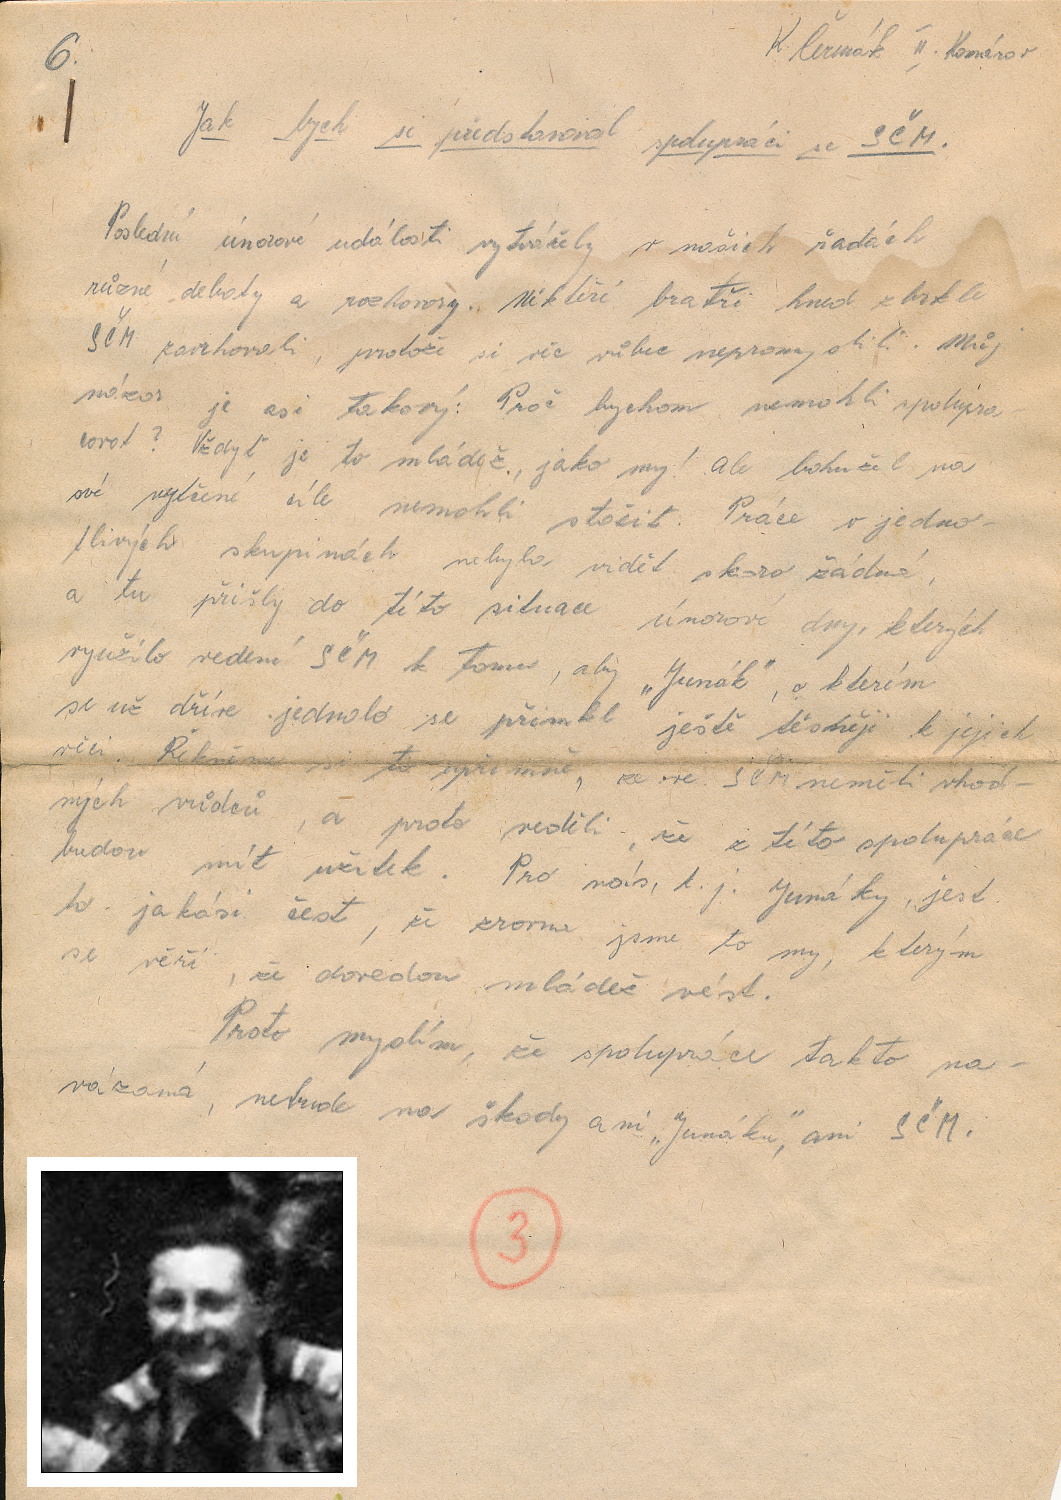 6.
K. Čermák II. Komárov
Jak bych si představoval spolupráci se SČM.
Poslední únorové události vytvářely v našich řadách
různé debaty a rozhovory. Někteří bratři hned zbrkle
SČM zavrhovali, protože si věc vůbec nepromyslili. Můj
názor je asi takový: Proč bychom nemohli spolupra-
covat? Vždyť je to mládež, jako my! Ale bohužel na
své vytčené cíle nemohli stačit. Práce v jedno-
tlivých skupinách nebylo vidět skoro žádné,
a tu přišly do této situace únorové dny, kterých
využilo vedení SČM k tomu, aby „Junák", o kterém
se už dříve jednalo se přimkl ještě těsněji k jejich
věci. Řekněme si to upřímně, že ve SČM neměli vhod-
ných vůdců, a proto věděli, že z této spolupráce
budou mít užitek. Pro nás, t. j. Junáky, jest
to jakási čest, že zrovna jsme to my, kterým
se věří, že dovedou mládež vést.
Proto myslím, že spolupráce takto na-
vázaná, nebude na škody ani „Junáku", ani SČM.
3